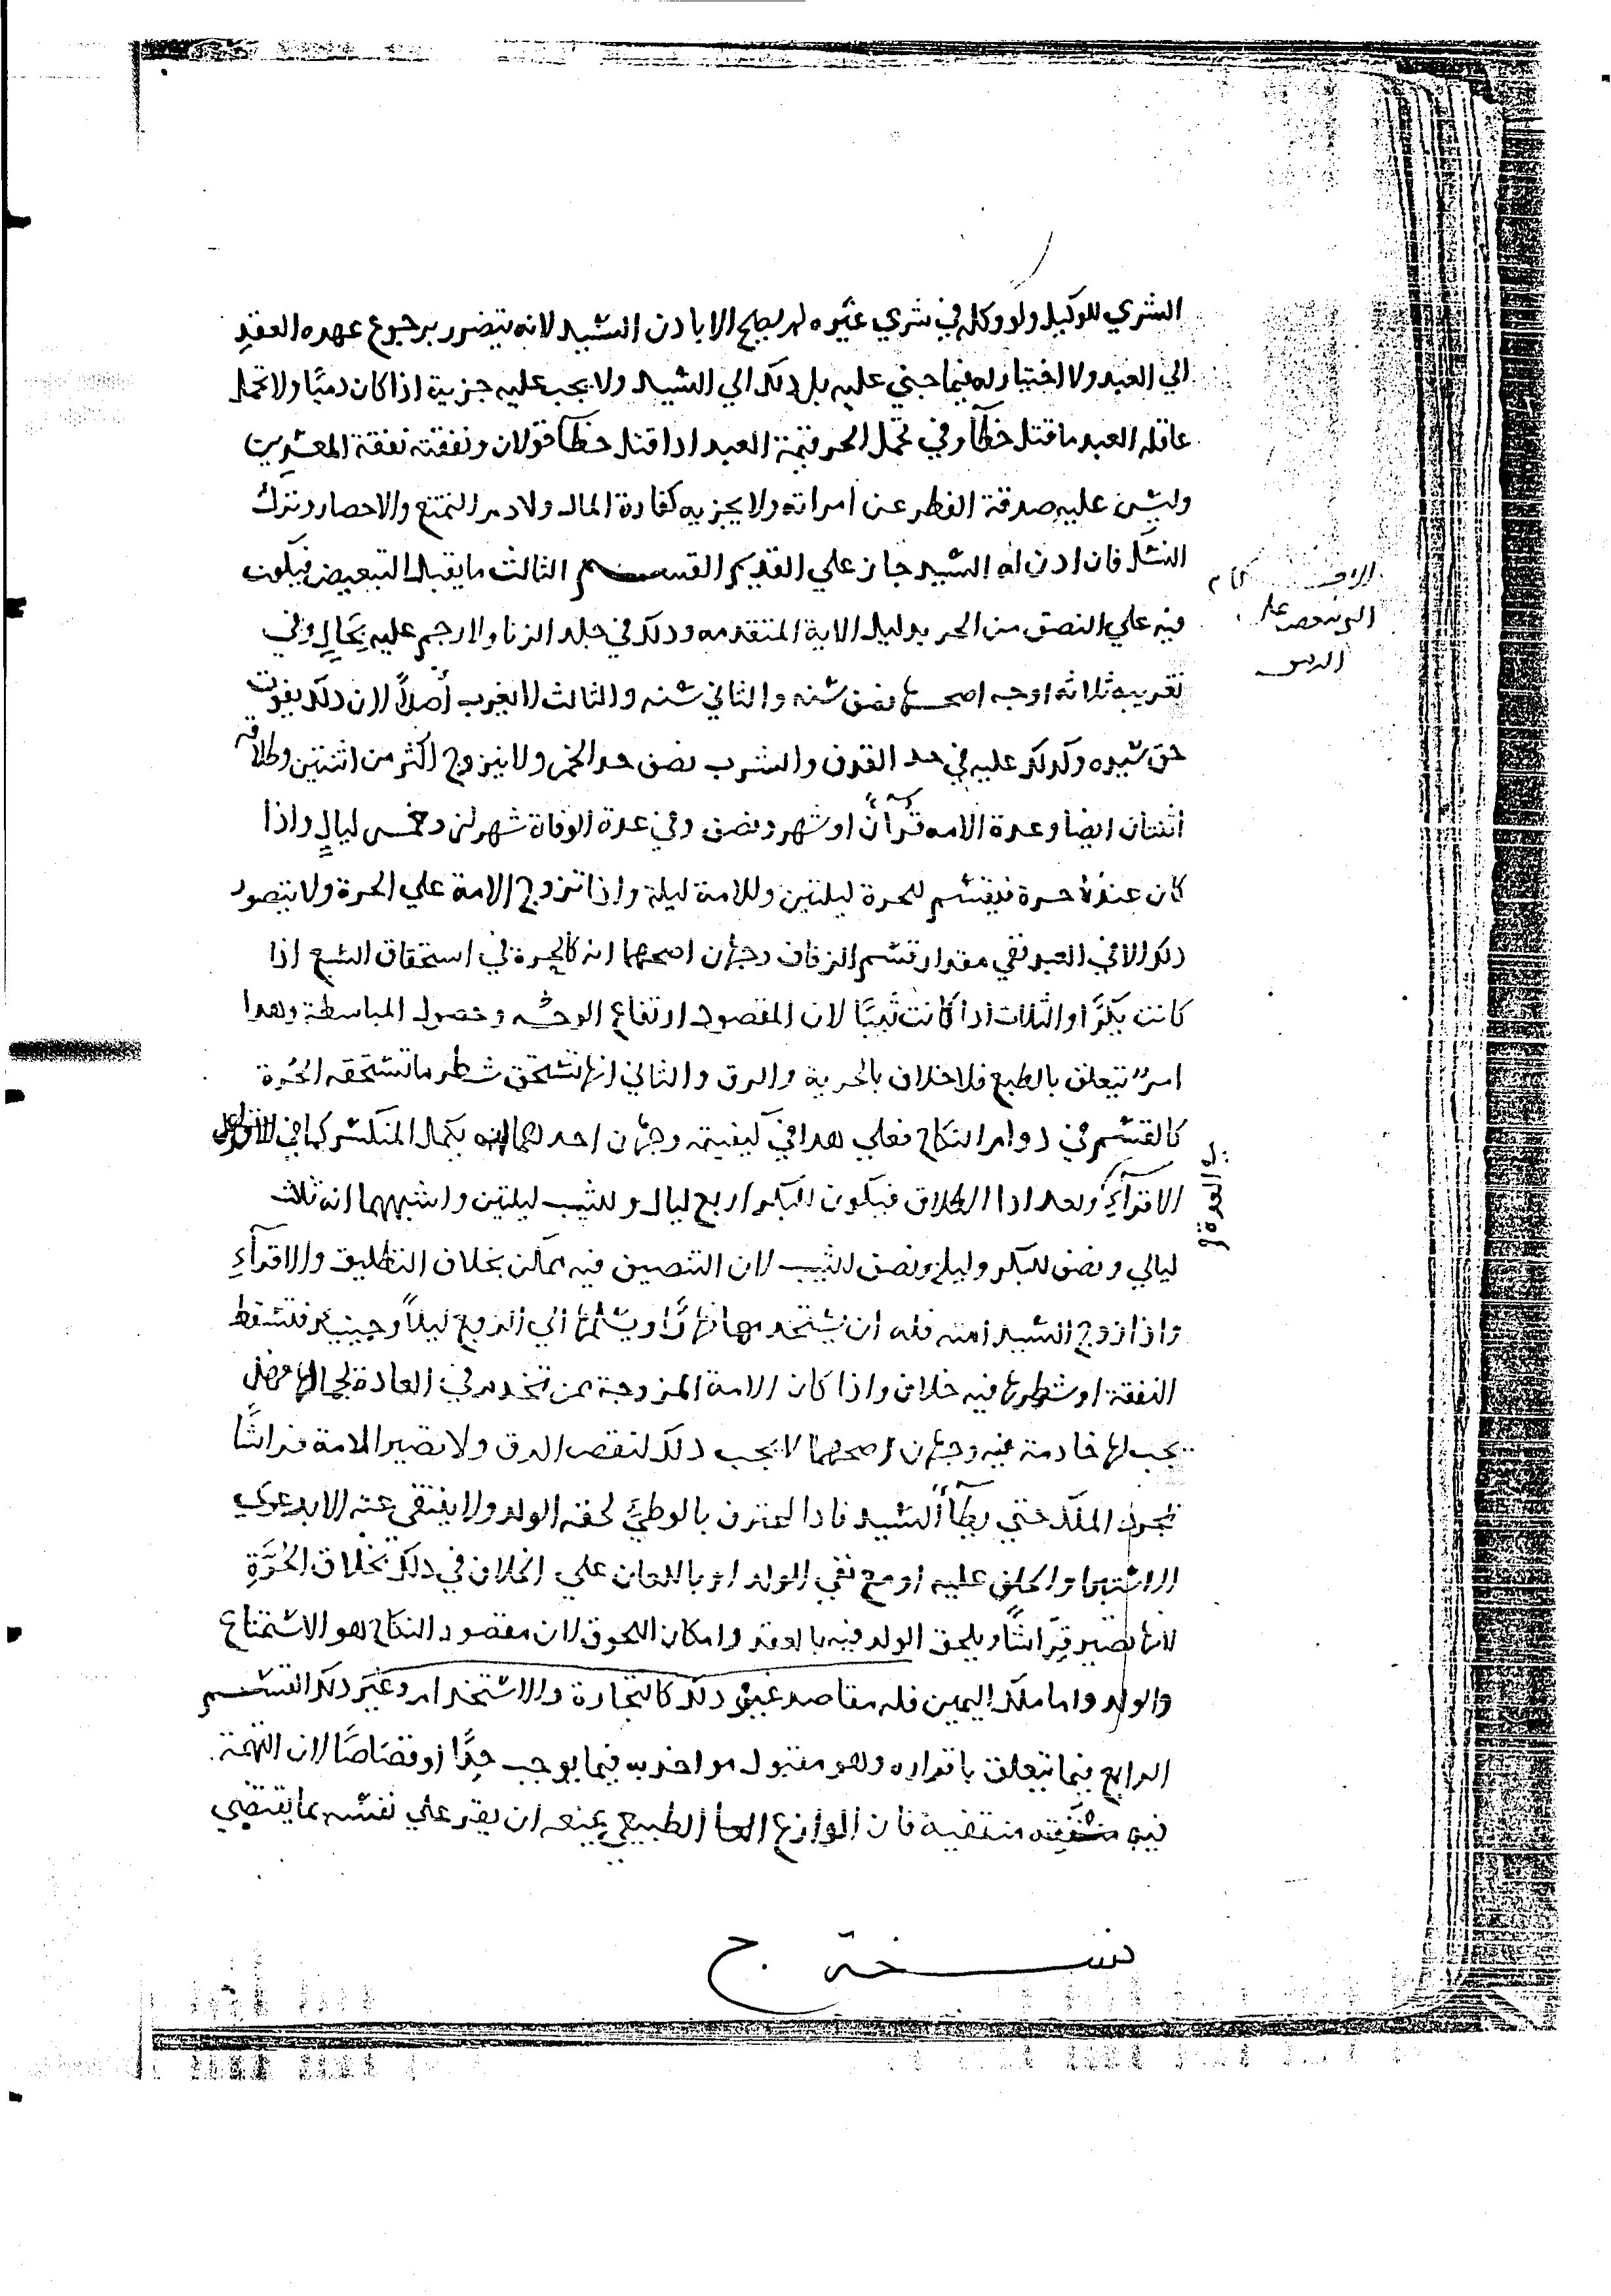 الشري للوكيل ولو وكله في شري غيره لم يصلح الا باذن السيد لانه يتضرر برجوع عهده العقد
الي العبد ولا اختيار له فيما جني عليه بل ذلك الي السيد ولا يجب عليه جزية اذا كان دميا ولا تحمل
عاقله العبد ما قتل خطآ وفي تحمل الحر قيمة العبد ادا قتل خطآ قولان ونفقته نفقة المعسرين
وليس عليه صدقة الفطر عن امراته ولا يجزيه كفارة المال ولا دم التمتع والاحصار وترك
النسك فان ادن له السيد جاز علي القديم القسم الثالث ما يقبل التبعيض فيكون
فيه علي النصف من الحر بدليل الاية المتقدمه ودلك في جلد الزنا ولا رجم عليه بحال وفي
تغريبه ثلاثه اوجه اصحها نصف سنه والثاني سنه والثالث لا يغرب أصلاً لان دلك يفوت
حق سيده وكدلك عليه في حد القدف والشرب نصف حد الخمر ولا يتزوج اكثر من اثنتين وطلاقه
اثنتان ايضا وعدة الامه قرآن او شهر ونصف وفي عدة الوفاة شهرين وخمس ليالٍ واذا
كان عنده حرة فيقسم للحرة ليلتين وللامة ليلة واذا تزوج الامة علي الحرة ولا يتصور
دلك الا في العبد ففي مقدار قسم الزفاف وجهان اصحهما انه كالحرة في استحقاق السبع اذا
كانت بكرًا او الثلاث ادا كانت ثيبًا لان المقصود ارتفاع الوحشه وحصول المباسطة وهدا
امرٌ يتعلق بالطبع فلا خلاف بالحرية والرق والثاني انها تستحق شطر ما تستحقه الحُرة
كالقسم في دوام النكاح فعلي هدا في كيفيته وجهان احدهما انه يكمل المنكسر كما في
الاقرآءِ وعدد ادا الطلاق فيكون للبكر اربع ليال وللثيب ليلتين واشبههما انه ثلث
ليالي ونصف للبكر وليلة ونصف للثيب لان التنصيف فيه ممكن بخلاف التطليق والاقرآءِ
واذا زوج السيد امته فله ان يستخدمها نهارًا ويسلمها الي الزوج ليلاً وحينيد فتسقط
النفقة او شطرها فيه خلاف واذا كان الامة المزوجة ممن تخدم في العادة لجمالها فهل
يجب لها خادمة فيه وجهان اصحهما لا يجب دلك لنقص الرق ولا تصير الامة فراشًا
بمجرد الملك حتي يطآ السيد فادا اعترف بالوطيِ لحقه الولد ولا ينتفي عنه الا بدعوي
الاستبرا والحلف عليه او مع نفي الولد او باللعان علي الخلاف في دلك بخلاف الحُرَّةِ
لانها تصير فِرَاشًا ويلحق الولد فيه بالعقد وامكان اللحوق لان مقصود النكاح هو الاستمتاع
والولد واما ملك اليمين فله مقاصد غير دلك كالتجارة والاستخدام وغير دلك القسم
الرابع فيما يتعلق باقراره وهو مقبول مواخد به فيما يوجب حدًّا أو قصَاصًا لان التهمة
فيه منتفية فان الوازع الطبيعي يمنعه ان يقر علي نفسه بما يقتضي
نسخة ج